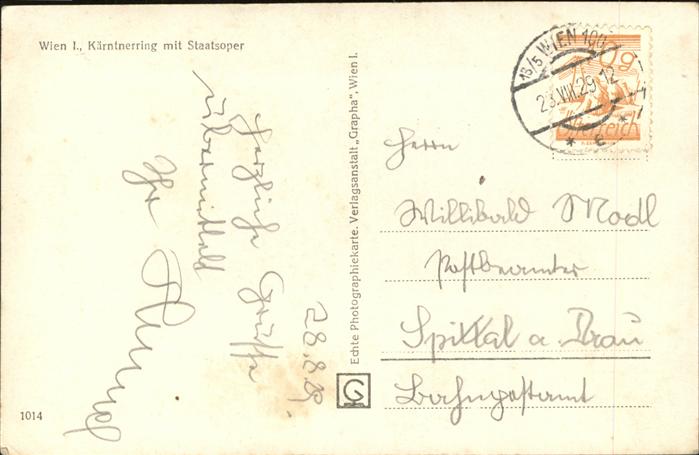 Wien I., Kärntnerring mit Staatsoper
Herzliche Grüsse
übermittelt
Ihr
28.8.29.
1014
Echte Photographiekarte. Verlagsanstalt „Grapha", Wien I.
G
18/5 WIEN 100
23.VIII.29.12
* e *
10g
Österreich
Herrn
Willibald Modl
Postbeamter
Spittal a. Drau
Bahnpostamt